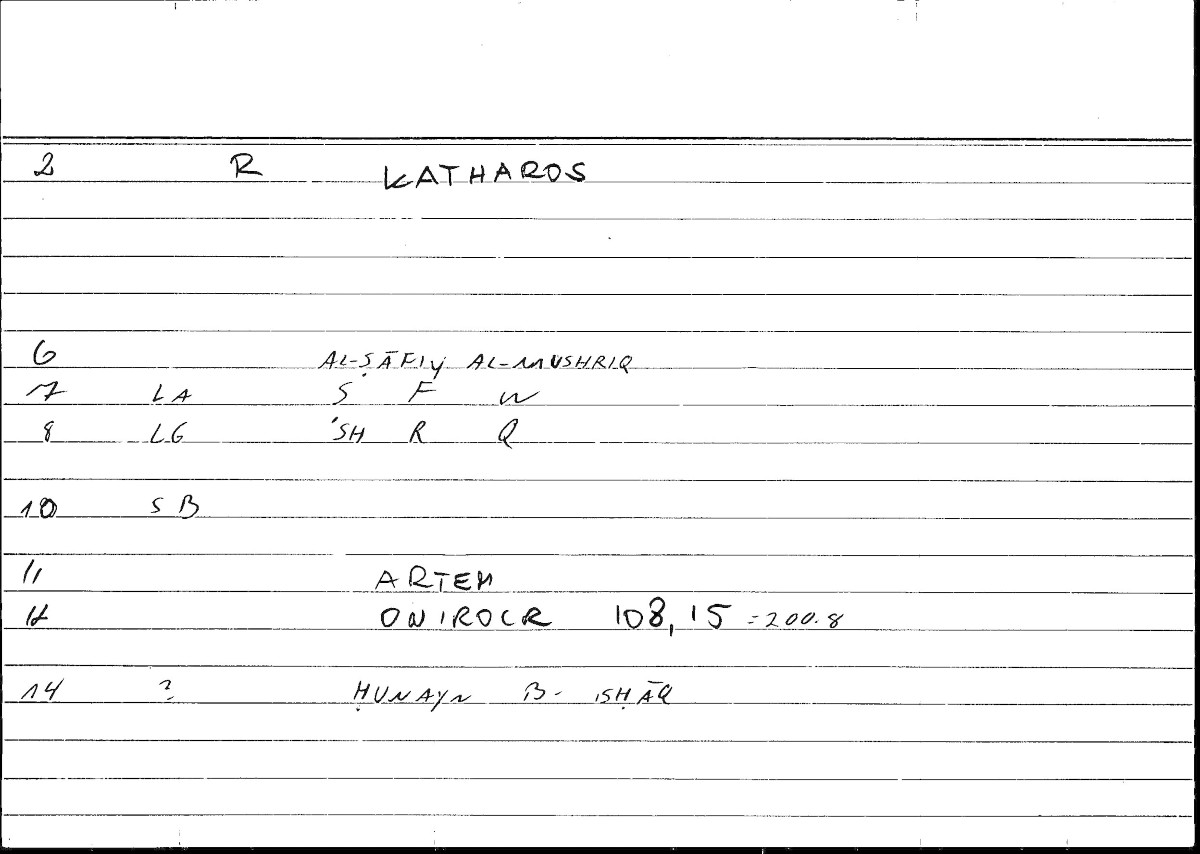 2 R KATHAROS
6 AL-ṢĀFIY AL-MUSHRIQ
7 LA S F W
8 LG 'SH R Q
10 SB
11 ARTEM
12 ONIROCR 108,15 =200.8
14 ? ḤUNAYN B- ISḤĀQ